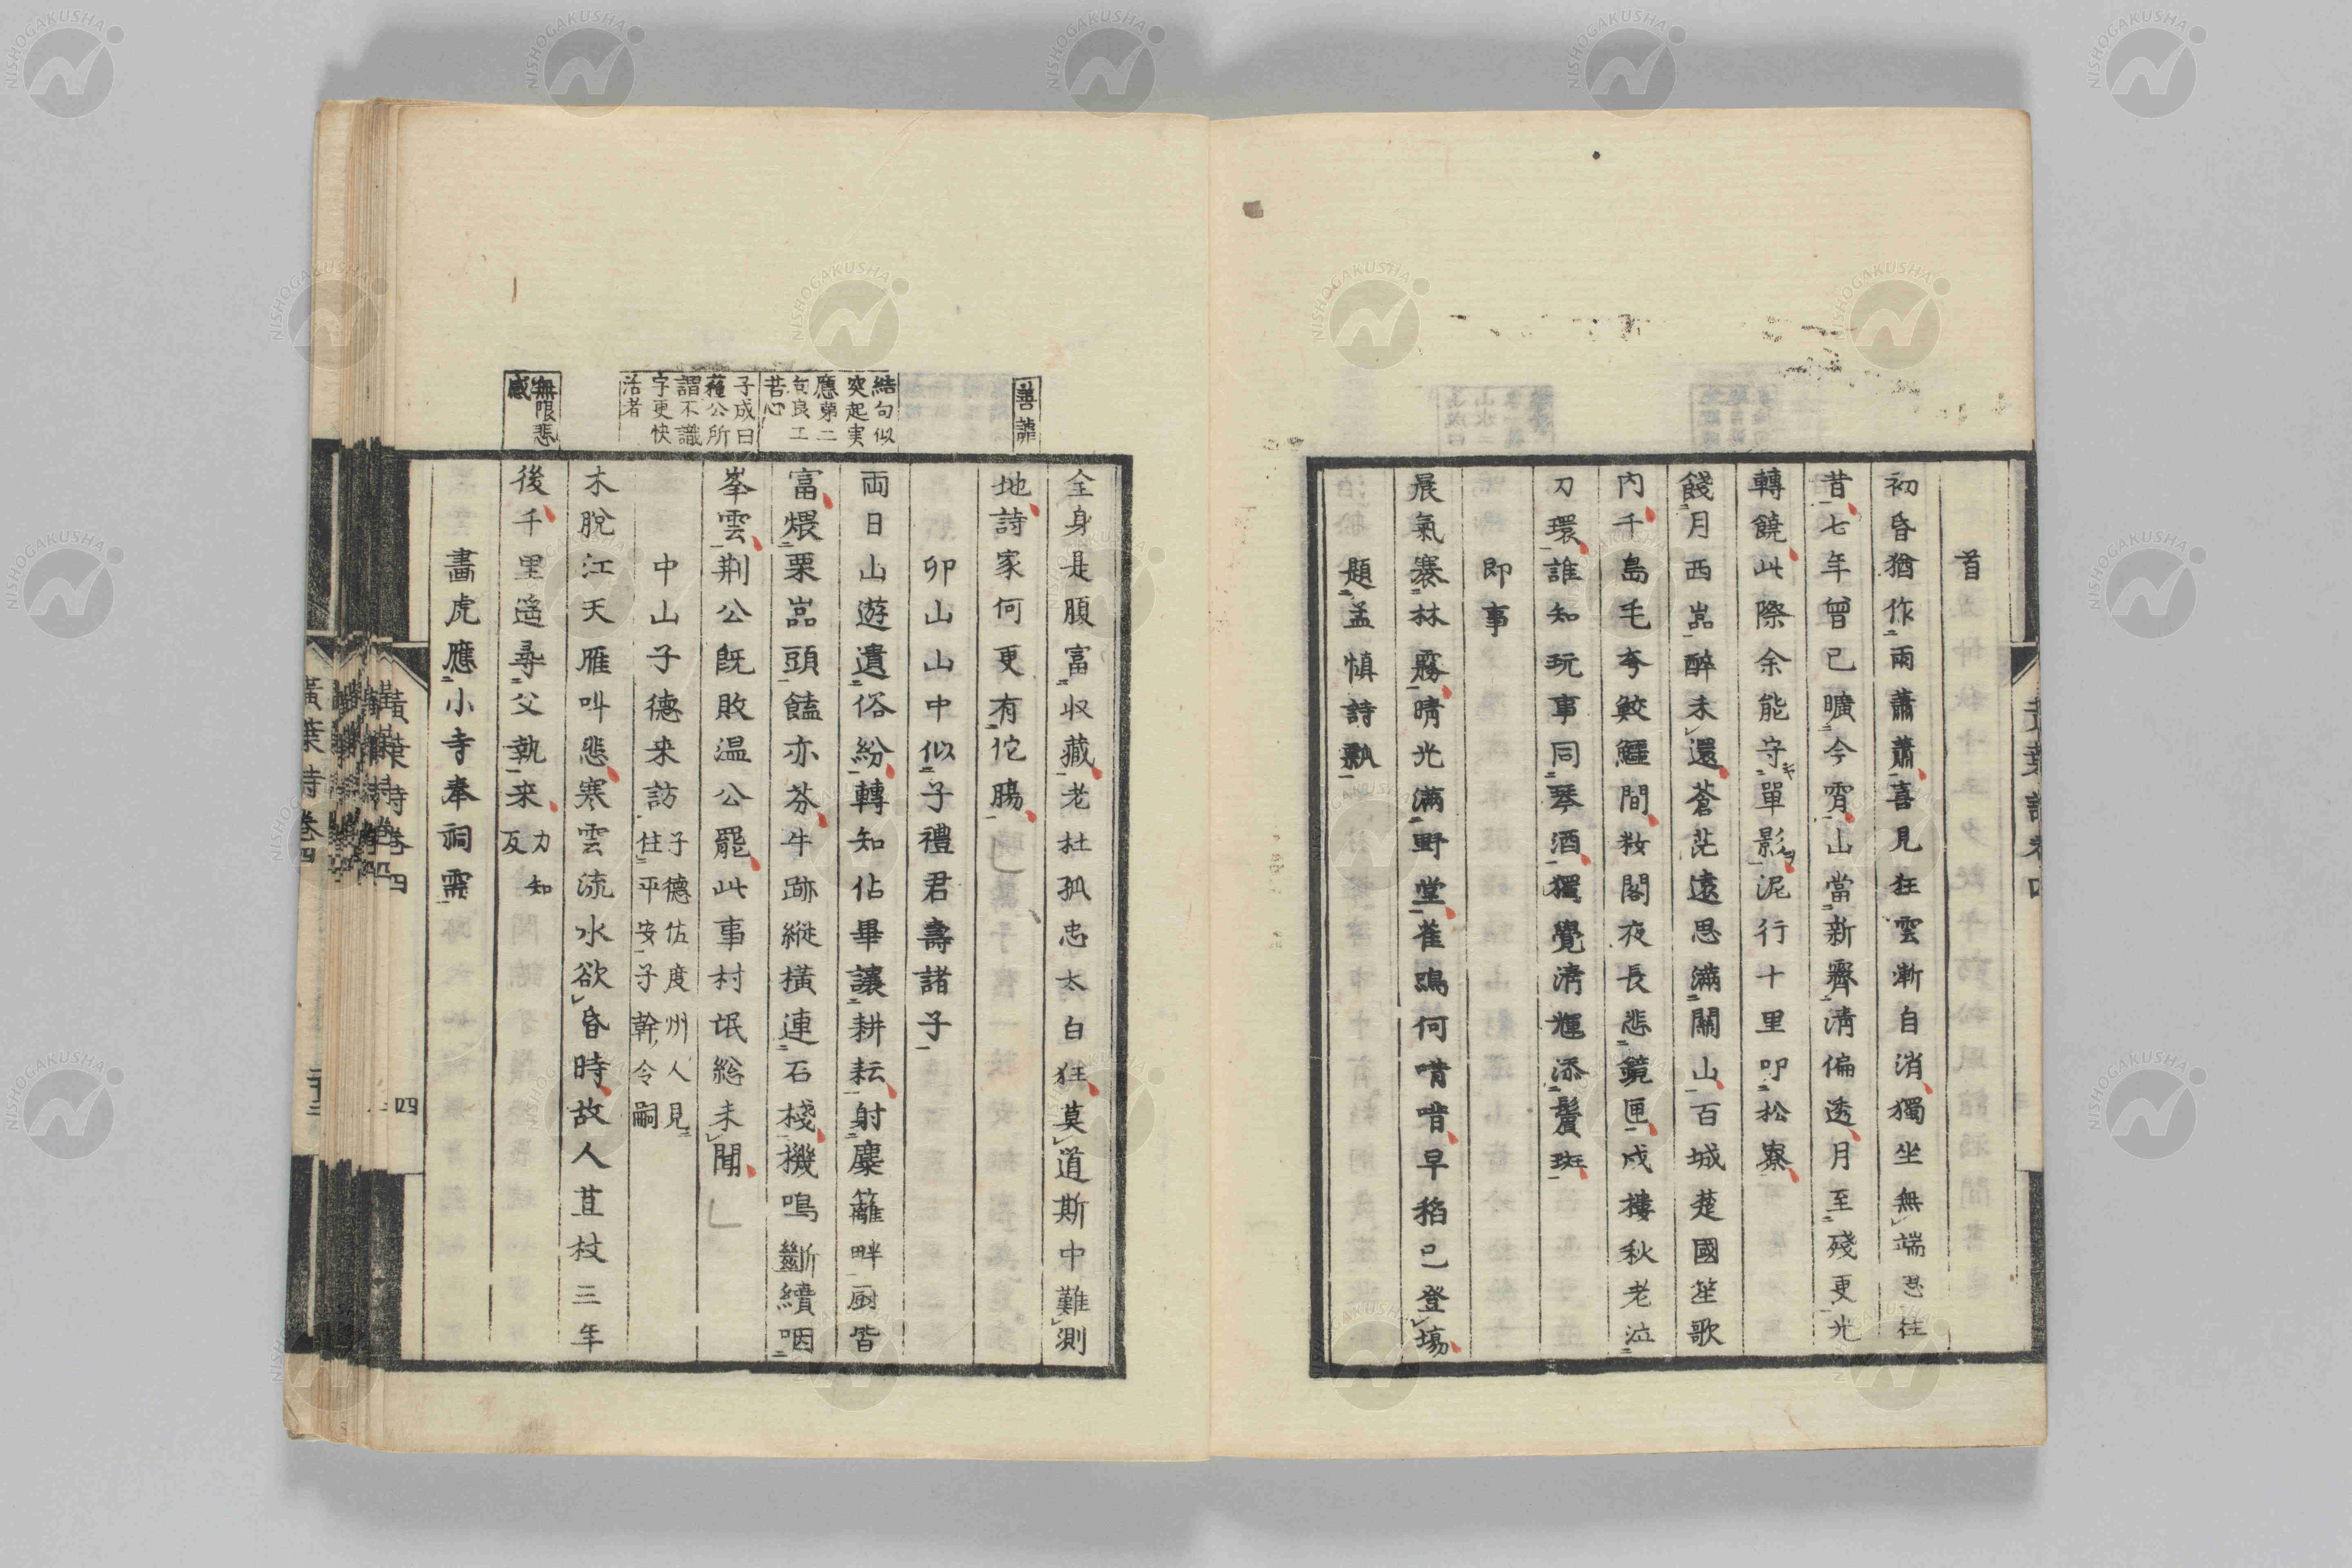 首
初昏猶作雨蕭蕭喜見狂雲漸自消獨坐無端思往
昔七年曾已曠今宵山當新霽清偏透月至殘更光
轉饒此際余能守單影泥行十里叩松寮
餞月西嵓醉未還蒼茫遠思滿關山百城楚國笙歌
内千島毛夸鮫鱷間粉閣夜長悲鏡匣戍樓秋老泣
刀環誰知玩事同琴酒獨覺清輝添鬢斑
即事
晨氣褰林霧晴光滿野堂雀鳴何喈喈早稻已登場
題孟慎詩瓢
善謔
全身是腹富収藏老杜孤忠太白狂莫道斯中難測
地詩家何更有佗腸
卯山山中似子禮君壽諸子
結句似
突起実
應第二
句良工
苦心
両日山遊遺俗紛轉知佔畢讓耕耘射麋籬畔厨皆
富煨栗嵓頭饁亦芬牛跡縱橫連石棧機鳴斷續咽
子成曰
蘓公所
謂不識
字更快
活者
峯雲荆公既敗温公罷此事村氓総未聞
中山子德来訪 子德佐度州人見
住平安子幹令嗣
木脫江天雁叫悲寒雲流水欲昏時故人苴杖三年
無限悲
感
後千里遥尋父執来 力知
反
畵虎應小寺奉祠需
黄葉詩卷四
NISHOGAKUSHA